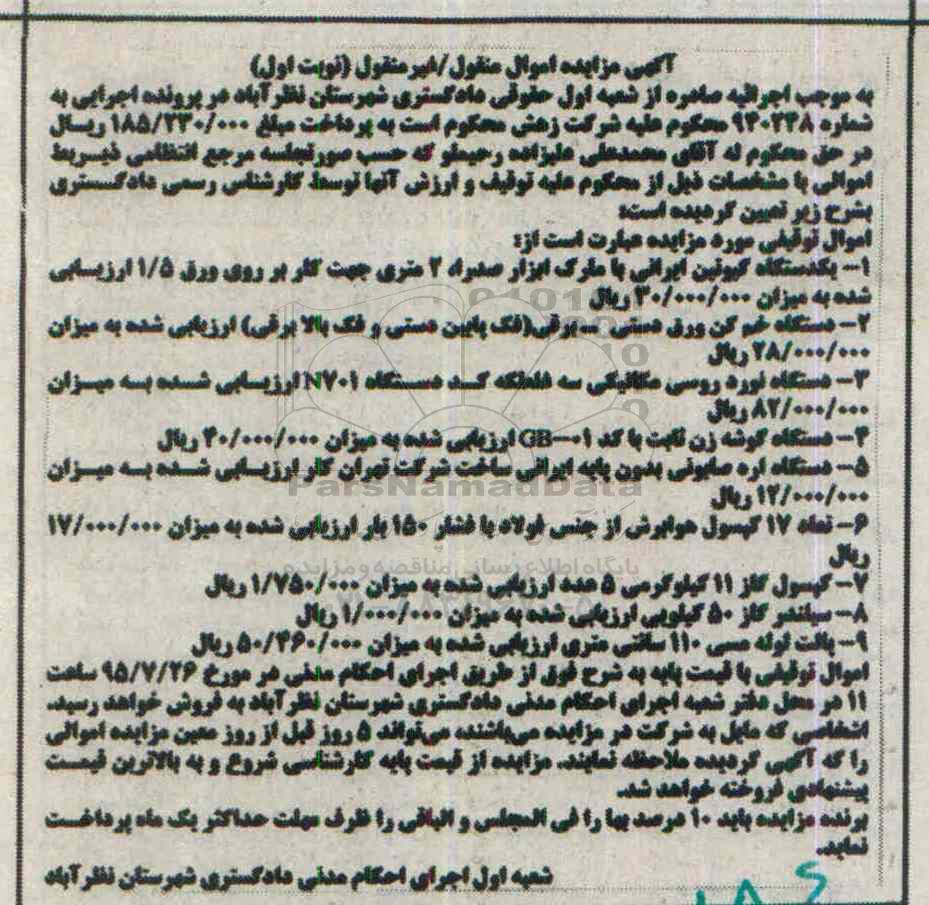 آگهی مزایده اموال منقول/غیرمنقول (نوبت اول)
به موجب اجرائیه صادره از شعبه اول حقوقی دادگستری شهرستان نظرآباد در پرونده اجرایی به
شماره ۹۴۰۲۳۸ محکوم علیه شرکت زهش محکوم است به پرداخت مبلغ ۱۸۵/۲۳۰/۰۰۰ ریال
در حق محکوم له آقای محمدعلی علیزاده رحیملو که حسب صورتجلسه مرجع انتظامی ذیربط
اموالی با مشخصات ذیل از محکوم علیه توقیف و ارزش آنها توسط کارشناس رسمی دادگستری
بشرح زیر تعیین گردیده است:
اموال توقیفی مورد مزایده عبارت است از:
۱- یکدستگاه گیوتین ایرانی با مارک ابزار صدرا، ۲ متری جهت کار بر روی ورق ۱/۵ ارزیابی
شده به میزان ۳۰/۰۰۰/۰۰۰ ریال
۲- دستگاه خم کن ورق دستی - برقی(فک پایین دستی و فک بالا برقی) ارزیابی شده به میزان
۲۸/۰۰۰/۰۰۰ ریال
۳- دستگاه نورد روسی مکانیکی سه غلطکه کد دستگاه N۷۰۱ ارزیابی شده به میزان
۸۲/۰۰۰/۰۰۰ ریال
۴- دستگاه گوشه زن ثابت با کد GB-۰۱ ارزیابی شده به میزان ۴۰/۰۰۰/۰۰۰ ریال
۵- دستگاه اره صابونی بدون پایه ایرانی ساخت شرکت تهران کار ارزیابی شده به میزان
۱۲/۰۰۰/۰۰۰ ریال
۶- تعداد ۱۷ کپسول هوابرش از جنس فولاد با فشار ۱۵۰ بار ارزیابی شده به میزان ۱۷/۰۰۰/۰۰۰
ریال
۷- کپسول گاز ۱۱ کیلوگرمی ۵ عدد ارزیابی شده به میزان ۱/۷۵۰/۰۰۰ ریال
۸- سیلندر گاز ۵۰ کیلویی ارزیابی شده به میزان ۱/۰۰۰/۰۰۰ ریال
۹- پالت لوله مسی ۱۱۰ سانتی متری ارزیابی شده به میزان ۵۰/۴۶۰/۰۰۰ ریال
اموال توقیفی با قیمت پایه به شرح فوق از طریق اجرای احکام مدنی در مورخ ۹۵/۷/۲۶ ساعت
۱۱ در محل دفتر شعبه اجرای احکام مدنی دادگستری شهرستان نظرآباد به فروش خواهد رسید.
اشخاصی که مایل به شرکت در مزایده می‌باشند، می‌تواند ۵ روز قبل از روز معین مزایده اموالی
را که آگهی گردیده ملاحظه نمایند. مزایده از قیمت پایه کارشناسی شروع و به بالاترین قیمت
پیشنهادی فروخته خواهد شد.
برنده مزایده باید ۱۰ درصد بها را فی المجلس و الباقی را ظرف مهلت حداکثر یک ماه پرداخت
نماید.
شعبه اول اجرای احکام مدنی دادگستری شهرستان نظرآباد
ParsNamadData
پایگاه اطلاع رسانی مناقصه و مزایده